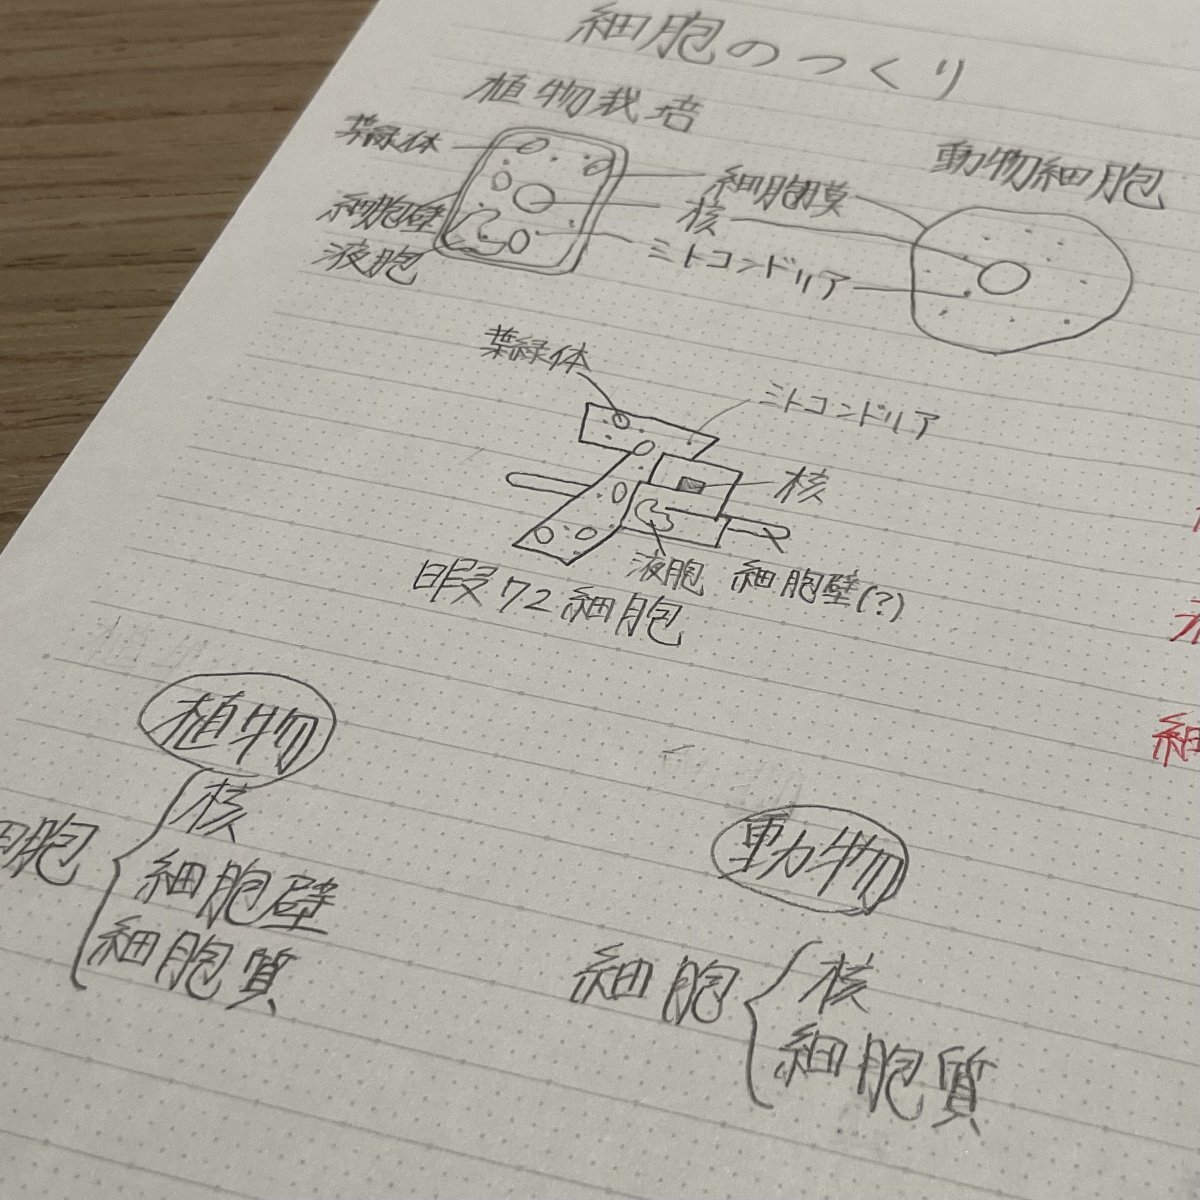 細胞のつくり
植物栽培
動物細胞
葉緑体
細胞膜
細胞壁
核
液胞
ミトコンドリア
葉緑体
ミトコンドリア
核
液胞
細胞壁(?)
暇72細胞
植物
細胞
核
細胞壁
細胞質
動物
細胞
核
細胞質
細